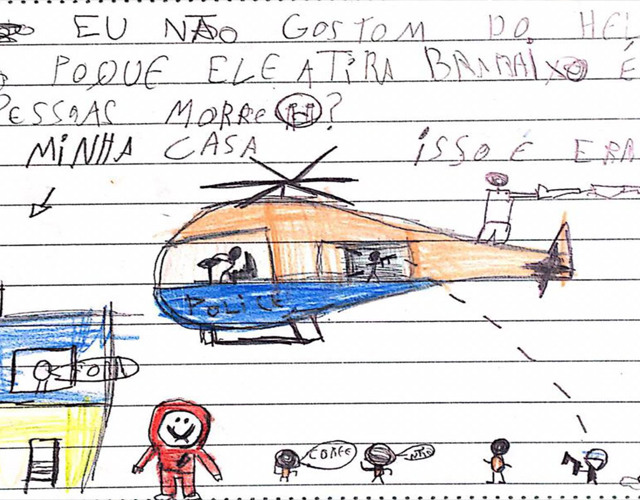 EU NÃO GOSTOM DO HEL
POQUE ELE ATIRA E
PESSOAS MORRE?
MINHA CASA
ISSO É ERA
POLICE
CORRE
NÃO